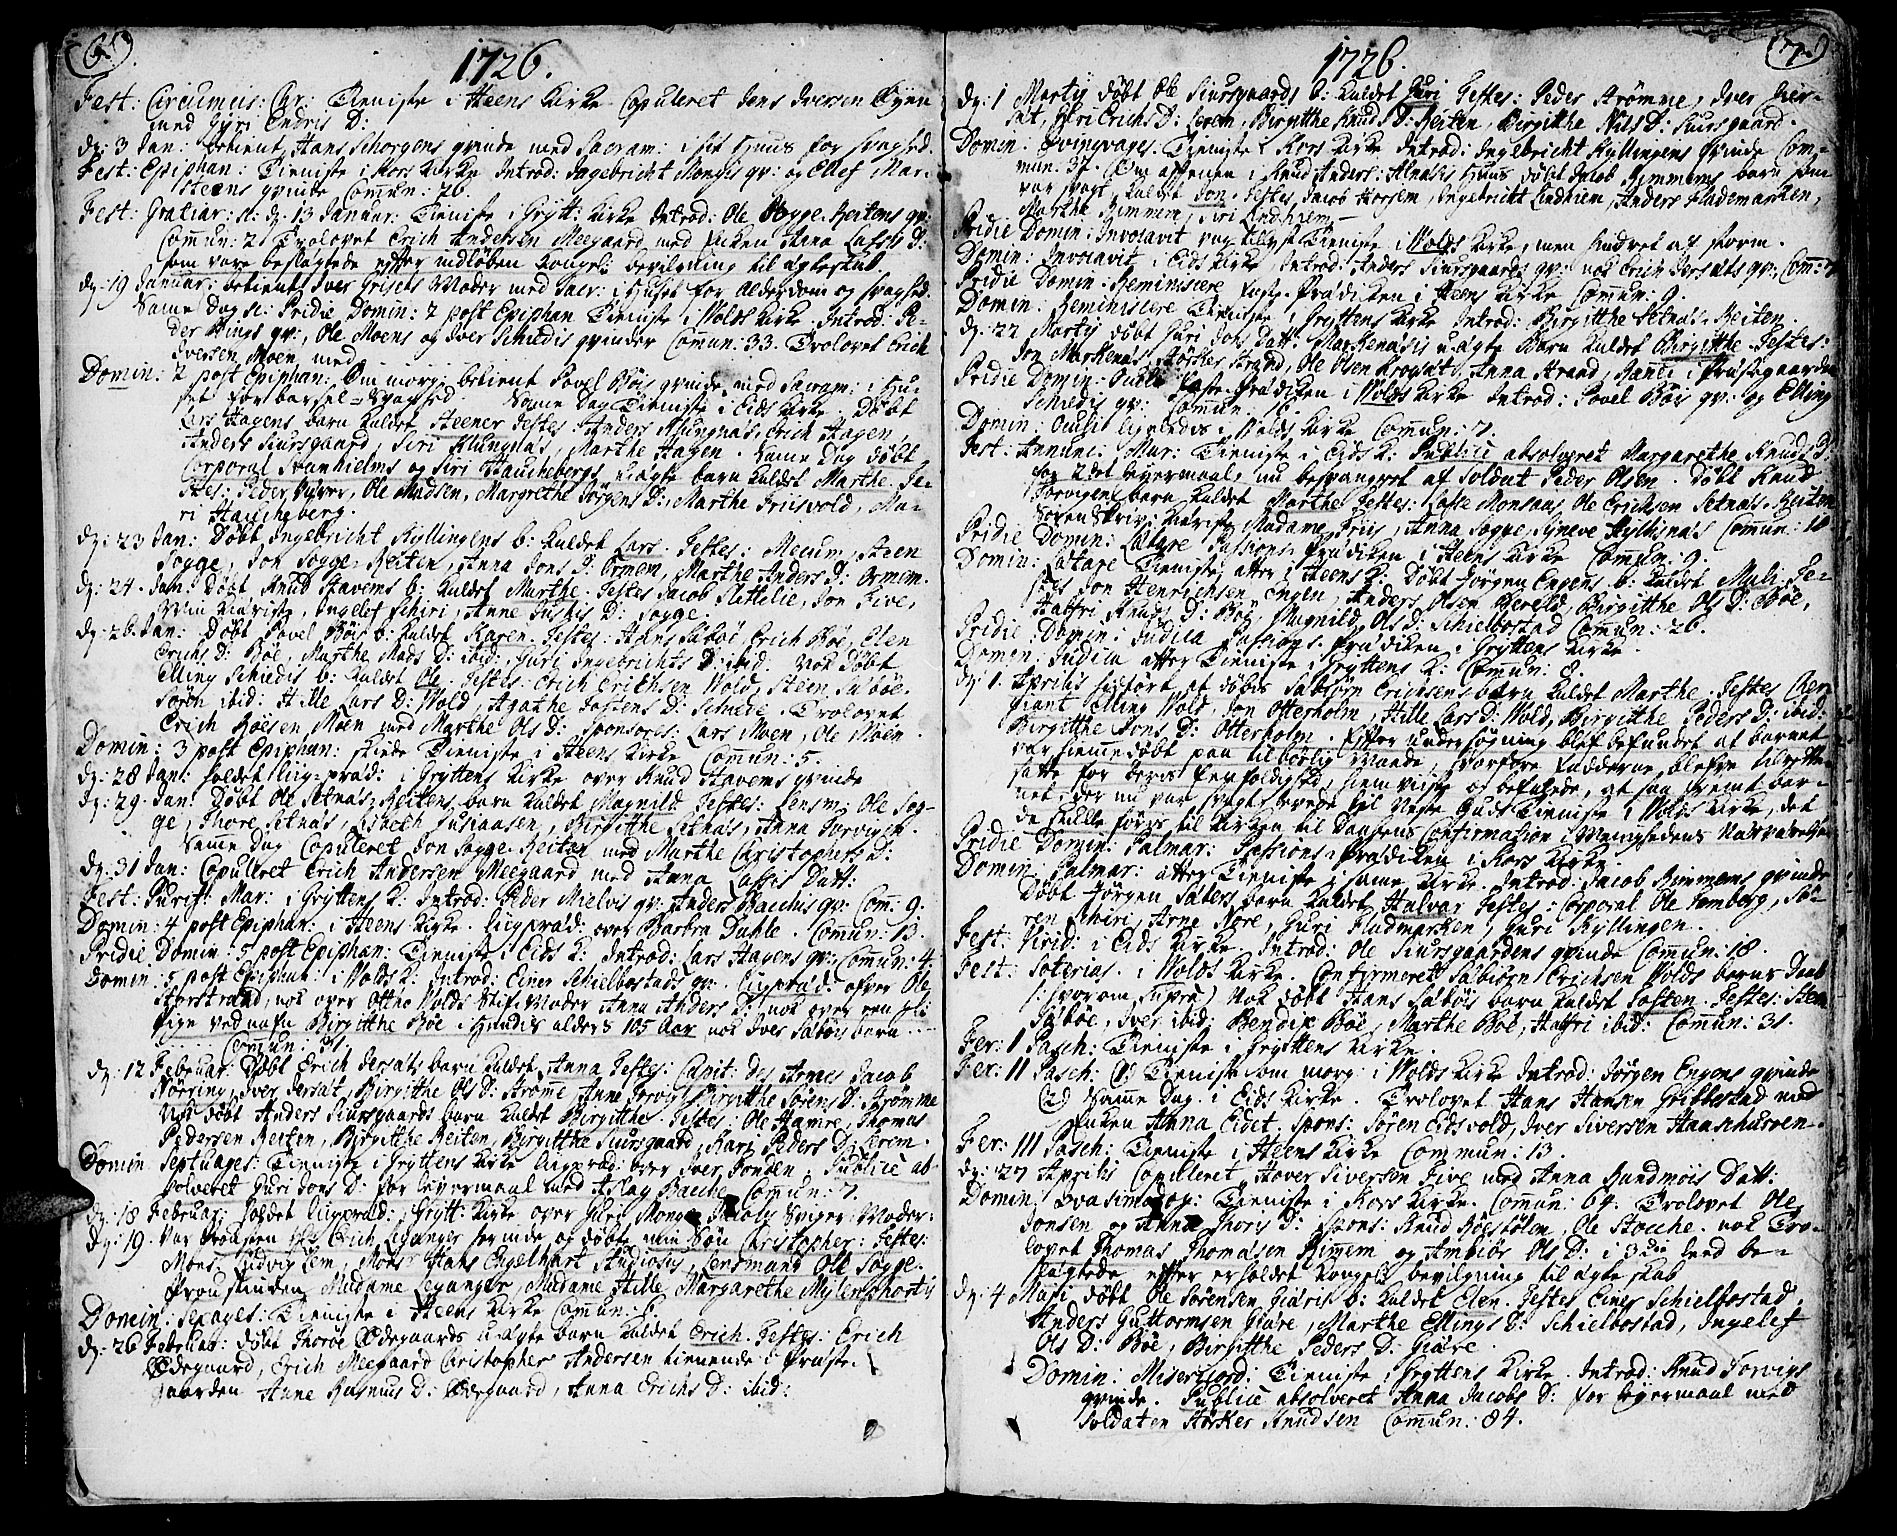 6.
1726.
Fest: Circumcis: Chr: Tieniste i Heens Kirke. Copuleret Jens Iversen
med Guri Endris D:
dij: 3 Jan: betient Hans Schorgens qvinde med Sacram: i sit Huus for svaghed.
Fest: Epiphan: Tieniste i Kors Kirke Introd: Ingebricht Monges qv: og Ellef Mar-
steens qvinde Commun: 26.
Fest: Gratiar: st: d: 13 Januar: Tieniste i Grytt: Kirke Introd: Ole Sogge-Reitens qv:
Commun: 2 Trolovet Erich Andersen Meegaard med Pichen Anna Lasses D:
som vare beslagtede efter indløben kongel: bevilgning til ægteskab.
dij: 19 Januar: betient Iver Grisets Moder med Sacr: i Huset for Alderdom og svaghed.
Same Dag sc: Pridie Domin: 2 post Epiphan Tieniste i Wolds Kirke. Introd: Pe-
der Vengs qv:, Ole Moens og Iver Schiedis qvinder Comun: 33. Trolovet Erich
Iversen Moen med
Domin: 2 post Epiphan: Om morg: betient Povel Böis qvinde med Sacram: i Hu-
set for barsel-Svaghed. Same Dag Tieniste i Eids Kirke. Döbt
Lars Hagens barn kaldet Steener Testes: Anders Klungnæs, Erich Hagen,
Anders Siursgaard, Siri Klungnæs, Marthe Hagen. Same Dag döbt
Corporal Svanhielms og Siri Haucheberg uægte barn kaldet Marthe. Te-
stes: Peder, Ole Madsen, Margrethe Jörgens D:, Marthe Friisvold, Ma-
ri Haucheberg.
dij: 23 Jan: Döbt Ingebricht Kyllingens b: kaldet Lars Testes: Mecum, Steen
Sogge, Jon Sogge-Reiten, Anna Jons D: Ormem, Marthe Anders D: Ormem.
dij: 24 Jan: Döbt Knud Stavems b: kaldet Marthe. Testes Jacob Slettelie, Jon Five,
Min Kiæriste, Ingelef Schiri, Anne Justis D: Sogge.
dij: 26. Jan: Döbt Povel Böis b: kaldet Karen. Testes: Hans Sæböe, Erich Böe, Elen
Erichs D: Böe, Marthe Mads D: ibid:, Guri Ingebrichts D: ibid: Nok Döbt
Elling Schiedis b: kaldet Ole. Testes: Erich Erichsen Wold, Steen Sæböe,
Sören ibid: Hille Lars D: Wold, Agathe Jostens D: Schiede. Trolovet
Erich Roesen Moen med Marthe Ols D: Sponsores: Lars Moen, Ole Moen.
Domin: 3 post Epiphan: skiede Tieniste i Heens Kirke Comun: 5.
dij: 28 Jan: holdet Liig-præd: i Gryttens Kirke over Knud Stavems qvinde
dij: 29. Jan: Döbt Ole Setnæs-Reitens barn kaldet Magnild Testes: Lensm: Ole Sog-
ge, Thore Setnæs, Lisbeth, Birgitthe Setnæs, Anna Torvigen.
Same Dag Copuleret Jon Sogge-Reiten med Marthe Christophers D:
dij: 31 Jan: Copuleret Erich Andersen Meegaard med Anna Lasses Datt:
Fest: Purif: Mar: i Gryttens K: Introd: Peder Mielvis qv: Anders Bacchis qv: Com: 9.
Domin: 4 post Epiphan: i Heens Kirke. Liigpræd: over Barbra Dahle. Comun: 13.
Pridie Domin: 5 post Epiphan: Tieniste i Eids K: Introd: Lars Hagens qv: Comun: 4.
Domin: 5 post Epiphan: i Wolds K: Introd: Einer Schielbostads qv: Liigpræd: ofver Ole
Storstrand, nok over Otthe Wolds Stif-Moder Anna Anders D: nok over een pi-
ge ved nafn Birgitthe Böe i Hendis alders 105 Aar nok Iver Sæböis barn
Comun: 31.
dij: 12 Februar: Döbt Erich Jersæts barn kaldet Anna Testes: Capit: des Armes Jacob
Nörring, Iver Jersæt, Birgitthe Ols D: Strömme Anne Torvig, Birgitthe Sörens D: Strömme
Nok döbt Anders Siursgaards barn kaldet Birgitthe. Testes: Ole Hamre, Thomas
Pedersen Reiten, Birgitthe Reiten, Birgitthe Siursgaard, Kari Peders D: Lerem.
Domin: Septuages: Tieniste i Gryttens Kirke Liigpræd: over Iver Tonden. Publicè ab-
solveret Guri Jons D: for leyermaal med Aslag Bacche Comun: 7.
dij: 18 Februar: holdet Liigpræd: i Grytt: Kirke over Guri Monge Jacobs Sviger-Moder:
dij: 19. Var Provsten Hr Erich Leganger herinde og döbte min Sön Christopher: Testes:
Mons: Ludvig Lem, Mons: Hans Engelhart Studiosus, Lensmand Ole Sogge.
Provstinden Madame Leganger, Madame Hille, Margarethe Mylenphorts
Domin: Sexages: Tieniste i Heens Kirke Comun: 6.
dij: 26 Februar: döbt Thoroe Ödegaards uægte barn kaldet Erich. Testes: Erich
Ödegaard, Erich Meegaard Christopher Andersen tienende i Præste-
gaarden Anne Rasmus D: Ödegaard, Anna Erichs D: ibid:
7.
1726.
dij: 1 Martij döbt Ole Siursgaards b: kaldet Guri Testes: Peder Strömme, Iver Jer-
sæt, Guri Erichs D: Lerem, Birgitthe Knuds D: Reiten, Birgitthe Nils D: Siursgaard.
Domin: Qvinqvages: Tieniste i Kors Kirke Introd: Ingebricht Kyllingens qvinde Com-
mun: 37. Om afftenen i Knud Anders: Alnæs Huus döbt Jacob Rimmems barn som
var svagt, kaldet Jon. Testes Jacob Horsem, Ingebricht Lindhiem, Anders Flademarken,
Martha Rimmem, Siri Lindhiem.
Pridie Domin: Invocavit var tillyst Tieniste i Wolds Kirke, men hindret af storm.
Domin: Invocavit i Eids Kirke, Introd: Anders Siursgaards qv: nok Erich Jersæts qv: Com: 7
Pridie Domin: Reminiscere Faste-Prædicken i Heens Kirke Comun: 9.
Domin: Reminiscere Tieniste i Gryttens Kirke Introd: Birgitthe Setnæs-Reiten.
dij: 22 Martij döbt Guri Jons Datt: Marchenæsis uægte Barn kaldet Birgitthe Testes:
Jon Markenæs, Störker Strand, Ole Olsen Krogsæt, Anna Strand, Ranti i Præstegaarden
Pridie Domin: Oculi Faste-Prædicken i Wolds Kirke Introd: Povel Böis qv: og Elling
Schiedis qv: Comun: 16.
Domin: Oculi ligeledis i Wolds Kirke Comun: 7.
Fest: Annunc: Mar: Tieniste i Eids K: Publicè absolveret Margarethe Knuds D:
for 2det leyermaal, nu besvangret af Soldat Peder Olsen. Döbt Knud
Torvigens barn kaldet Marthe Testes: Lasse Monsaas, Ole Erichsen Setnæs-Reiten
Soren Skriv: Kiæriste Madame Friis, Anna Sogge, Synneve Hyllnæs Comun: 18
Pridie Domin: Lætare Passions-Prædicken i Heens Kirke Comun: 9.
Domin: Lætare Tieniste atter i Heens K: Döbt Jörgen Engens b: kaldet Mali Te-
stes Jon Henrichsen Engen, Anders Olsen Hereld, Birgitthe Ols D: Böe,
Halfri Knuds D: Böe, Magnild Ols D: Schielbostad Comun: 26.
Pridie Domin: Judica Passions-Prædicken i Gryttens Kirke.
Domin: Judica atter Tieniste i Gryttens K: Comun: 8.
dij: 1. Aprilis hidfört at döbes Sæbiörn Erichsens barn kaldet Marthe. Testes Ser-
giant Elling Wold, Jon Otterholm, Hille Lars D: Wold, Birgitthe Peders D: ibid:
Birgitthe Jons D: Otterholm. Effter undersögning blef befundet at barnet
var hiemmedöbt paa tilbörlig Maade, hvorfore Fadderne blefve tilrette
satte for deris Eenfoldighed, hiemviiste og befalede, at saa fremt bar-
net, der nu var svagt, levede til Neste Guds Tieniste i Wolds Kirke, det
da skulle föris til Kirken til Daabens Confirmation i Meenighedens Nærværelse
Pridie Domin: Palmar: Passions-Prædicken i Kors Kirke.
Domin: Palmar: atter Tieniste i same Kirke. Introd: Jacob Rimmems qvinde
Döbt Jörgen Sæters barn kaldet Halvar Testes: Corporal Ole Romberg, Sö-
ren Schiri, Arne Nore, Guri Fladmarken, Guri Kyllingen.
Fest: Virid: i Eids Kirke. Introd: Ole Siursgaardens qvinde Comun: 18.
Fest: Soterias: i Wolds Kirke. Confirmeret Sæbiörn Erichsen Wolds barns Daab
(: hvorom Supra) Nok döbt Hans Sæböis barn kaldet Josten. Testes: Steen
Sæböe, Iver ibid: Bendix Böe, Marthe Böe, Halfri ibid: Comun: 31.
Fer: 1 Pasch: Tieniste i Gryttens Kirke.
Fer: 11 Pasch: (1) Tieniste om morg: i Wolds Kirke Introd: Jörgen Engens qvinde
(2) Samme Dag i Eids Kirke. Trolovet Hans Hansen Gribbestad med
Enken Anna Eidet. Spons: Sören Eidsvold, Iver Siversen Haaschiusven.
Fer: 111 Pasch: Tieniste i Heens Kirke Commun: 13.
dij: 27 Aprilis Copulleret Haver Siversen Five med Anna Sandmois Datt:
Domin: Qvasimodog: Tieniste i Kors Kirke. Commun: 64. Trolovet Ole
Jonsen og Anna Thores D: Spons: Knud Roestölm, Ole Stocche. nok Tro-
lovet Thomas Thomæsen Rimmem og Ambiör Ols D: i 3die leed be-
slægtede effter erholdet kongel: bevilgning til ægteskab
dij: 4 Maji döbt Ole Sörensen Giæris b: kaldet Elen. Testes Einer Schielbostad,
Anders Guttormsen Giære, Marthe Ellings D: Schielbostad, Ingelef
Ols D: Böe, Birgitthe Peders D: Giære.
Domin: Misericord: Tieniste i Gryttens Kirke. Introd: Knud Torvigs
qvinde. Publicè absolveret Anna Jacobs D: for leyermaal med
Soldaten Störker Knudsen Comun: 84.